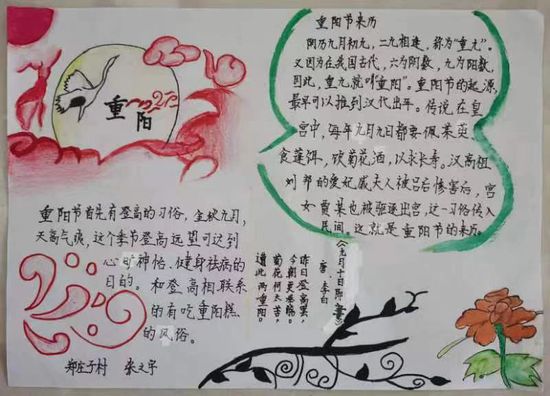 重阳
重阳节来历
阴历九月初九，二九相连，称为"重九"。
又因为在我国古代，六为阴数，九为阳数，
因此，重九就叫"重阳"。重阳节的起源，
最早可以推到汉代出年。传说在皇
宫中，每年九月九日都要佩茱萸，
食莲饵，饮菊花酒，以求长寿。汉高祖
刘邦的爱妃戚夫人被吕后惨害后，宫
女贾某也被驱逐出宫，这一习俗传入
民间。这就是重阳节的来历。
重阳节首先有登高的习俗，金秋九月，
天高气爽，这个季节登高远望可达到
心旷神怡、健身祛病的
目的。和登高相联系
的有吃重阳糕
的风俗。
《九月十日即事》
唐：李白
昨日登高罢，
今朝更举觞。
菊花何太苦，
遭此两重阳。
郑庄子村 张文宇